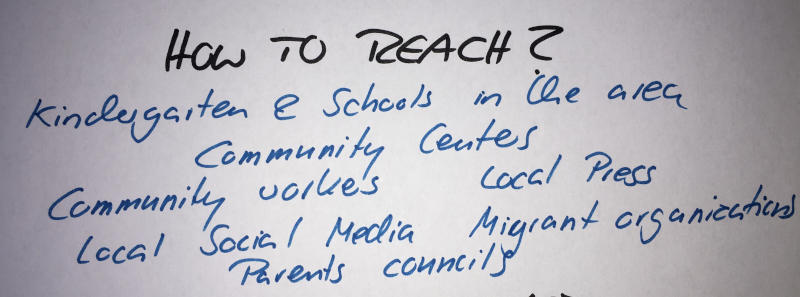 HOW TO REACH?
Kindergarten & Schools in the area
Community Centers
Community workes Local Press
Local Social Media Migrant organizations
Parents councils